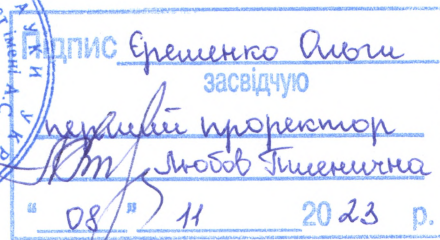 Підпис Єременко Ольги
засвідчую
перший проректор
Любов Пшенична
"08" 11 2023 р.